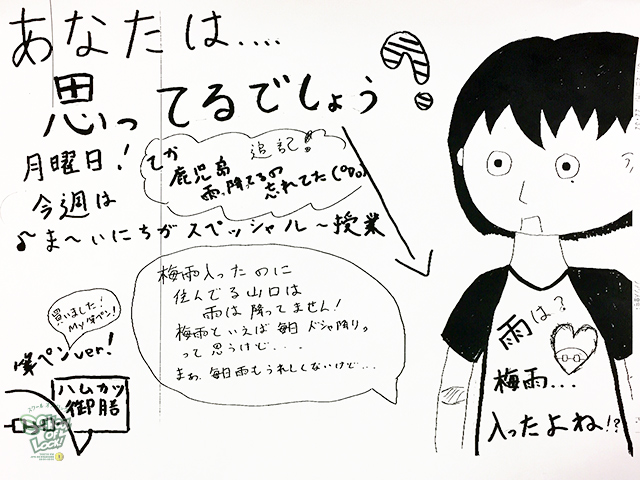 あなたは....
思ってるでしょう?
月曜日!
今週は
♪ま〜いにちがスペッシャル〜授業
てか 追記!
鹿児島
雨、降ってるの
忘れてた(°▽°)
梅雨入ったのに
住んでる山口は
雨は降ってません!
梅雨といえば毎日ドシャ降り。
って思うけど...
まぁ、毎日雨もうれしくないけど...
買いました!
My筆ペン!
筆ペンver!
ハムカツ
御膳
雨は?
梅雨...
入ったよね!?